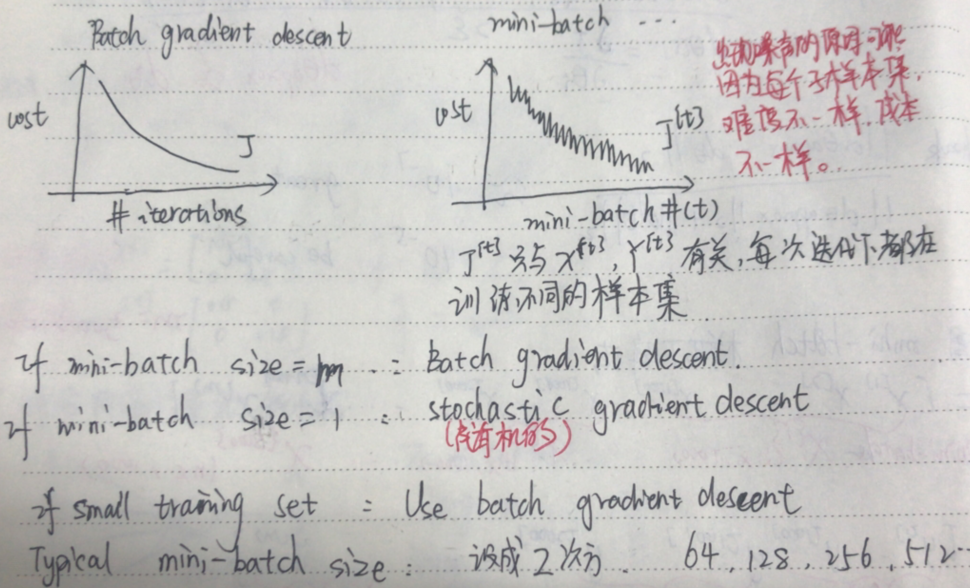 Batch gradient descent
cost
J
# iterations
mini-batch ...
cost
J{t}
mini-batch #(t)
出现噪音的原因:
因为每个子样本集,
难度不一样,成本
不一样。
J{t} 只与 X{t}, Y{t} 有关,每次迭代下都在
训练不同的样本集
If mini-batch size = m : Batch gradient descent.
If mini-batch size = 1 : stochastic gradient descent
(随机的)
If small training set : Use batch gradient descent
Typical mini-batch size : 设成2次方. 64, 128, 256, 512...